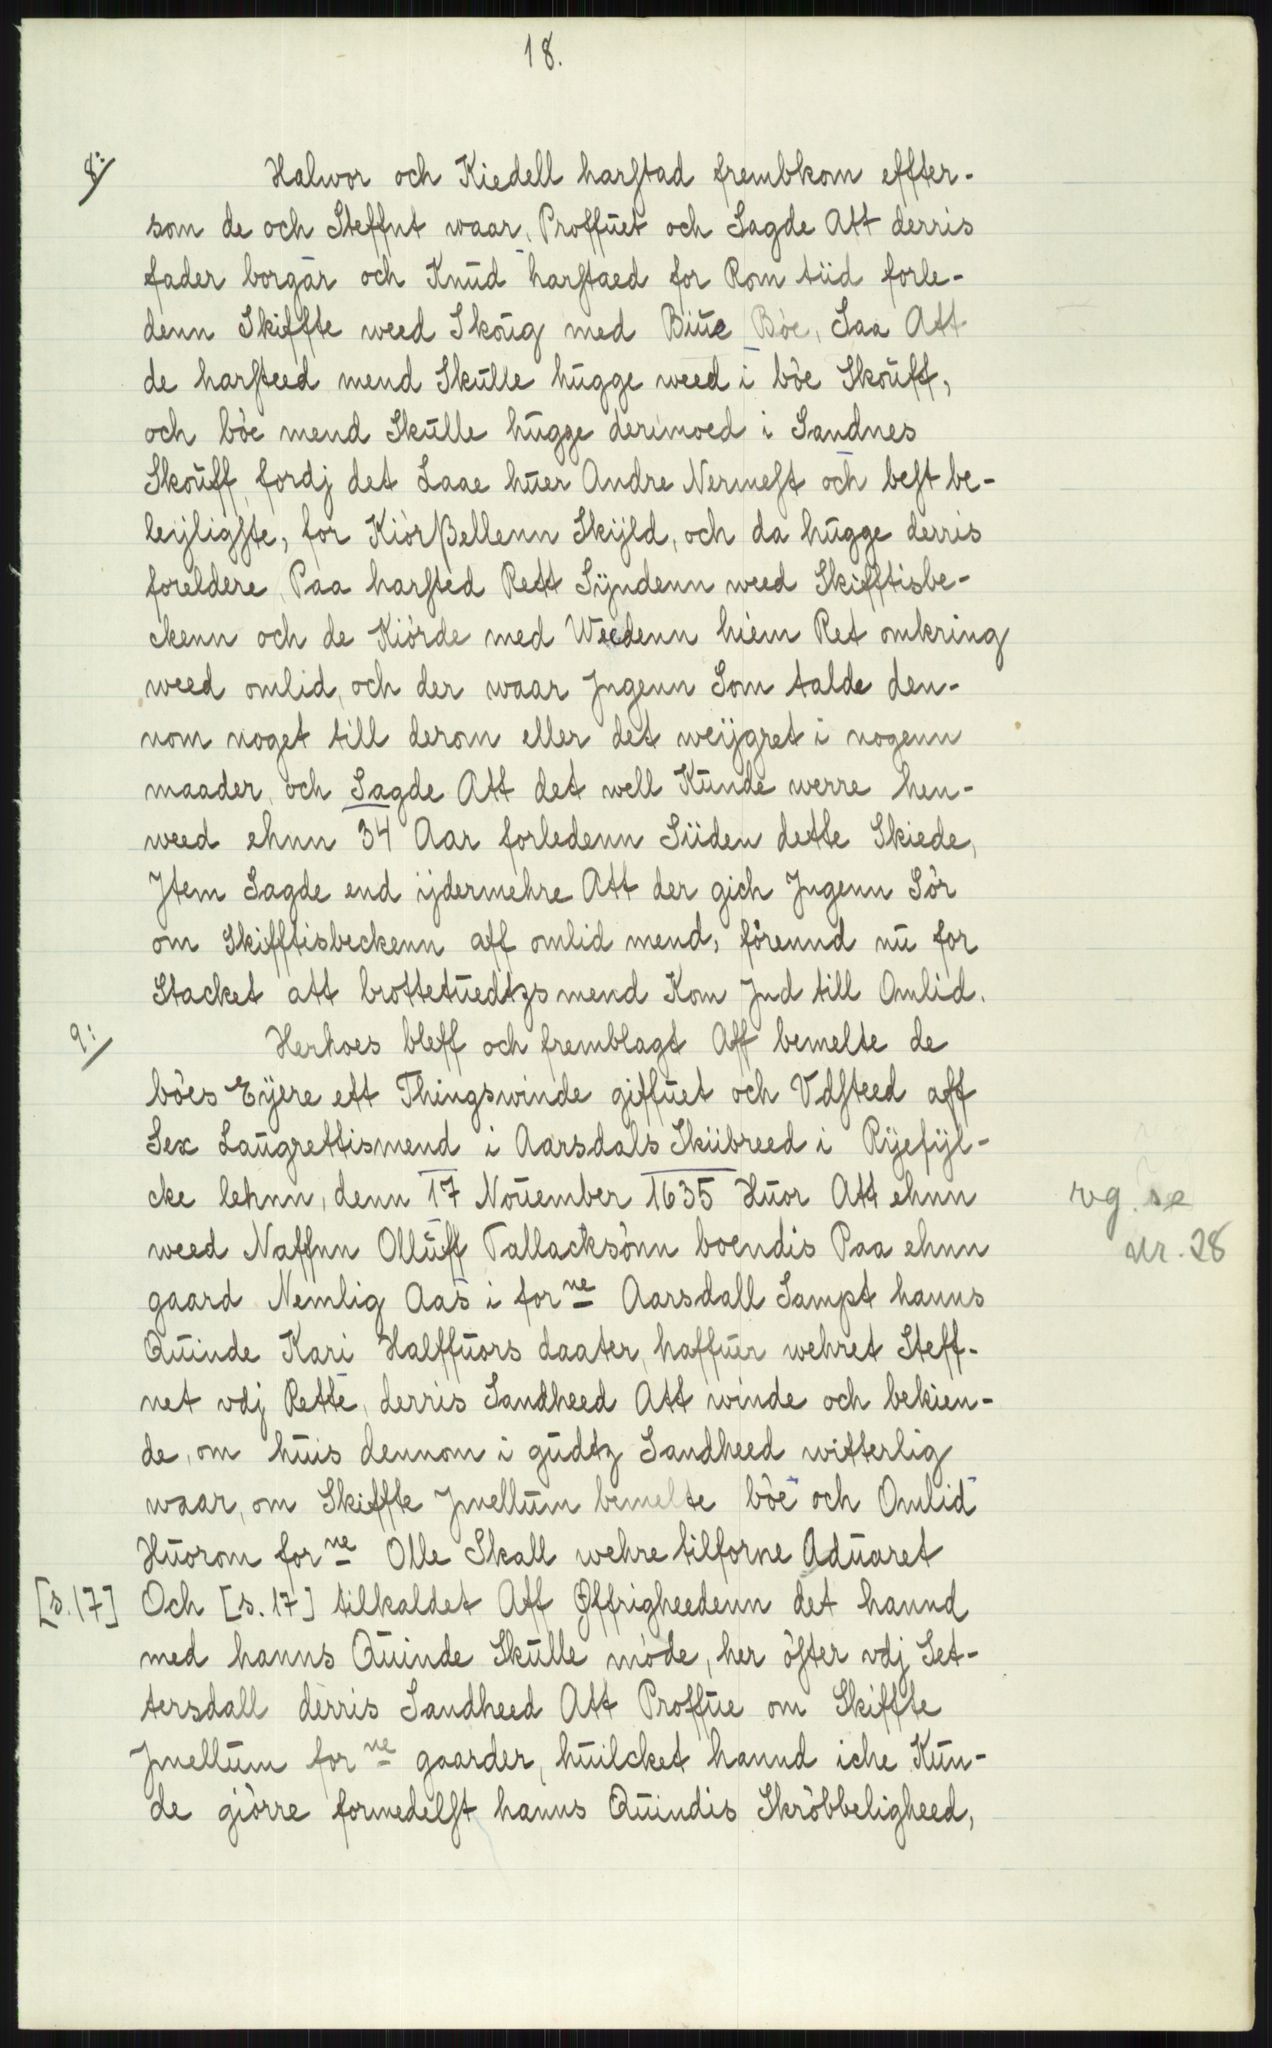 18.
8:/ Halwor och Kiedell harstad frembkom effter-
som de och Steffnt waar, Proffuet och Sagde Att derris
fader borgar och Knud harstaed for Rom tiid forle-
denn Skiffte weed Skoug med Biue Bòe, Saa Att
de harsteed mend Skulle hugge weed i bòe Skouff,
och bòe mend Skulle hugge derimoed i Sandnes
Skouff, fordj det Laae huer Andre Nermest och best be-
leyligste, for Kiòrßellenn Skyld, och da hugge derris
foreldere, Paa harsted Rett Syndenn weed Skifftisbe-
ckenn och de Kiòrde med Weedenn hiem Ret omkring
weed omlid, och der waar Jngenn Som talde den-
nom noget till derom eller det weygret i nogenn
maader, och Sagde Att det well Kunde werre hen-
weed ehnn 34 Aar forledenn Siiden dette Skiede,
Jtem Sagde end ydermehre Att der gich Jngenn Sòr
om Skifftisbeckenn aff omlid mend, förennd nu for
Stacket att brottetuedtzs mend Kom Jnd till Omlid.
9:/ Herhoes bleff och fremblagt Aff bemelte de
bòes Eyere ett Thingswinde giffuet och Vdsteed aff
Sex Laugrettismend i Aarsdals Skiibreed i Ryefyl-
cke lehnn, denn 17 Nouember 1635 Huor Att ehnn
weed Naffnn Olluff Tallacksònn boendis Paa ehnn
gaard Nemlig Aas i forne Aarsdall Sampt hanns
Quinde Kari Halffuors daater, haffuer wehret Steff-
net vdj Rette, derris Sandheed Att winde och bekien-
de, om huis dennom i gudtz Sandheed witterlig
waar, om Skiffte Jmellum bemelte bòe och Omlid
Huorom forne Olle Skall wehre tilforne Aduaret
[s.17] Och [s. 17] tilkaldet Aff Øffrigheedenn det hannd
med hanns Quinde Skulle mòde, her òster vdj Set-
tersdall derris Sandheed Att Proffue om Skiffte
Jmellum forne gaarder, huilcket hannd iche Kun-
de giòrre formedelst hanns Quindis Skròbbeligheed,
vg. se
nr. 28